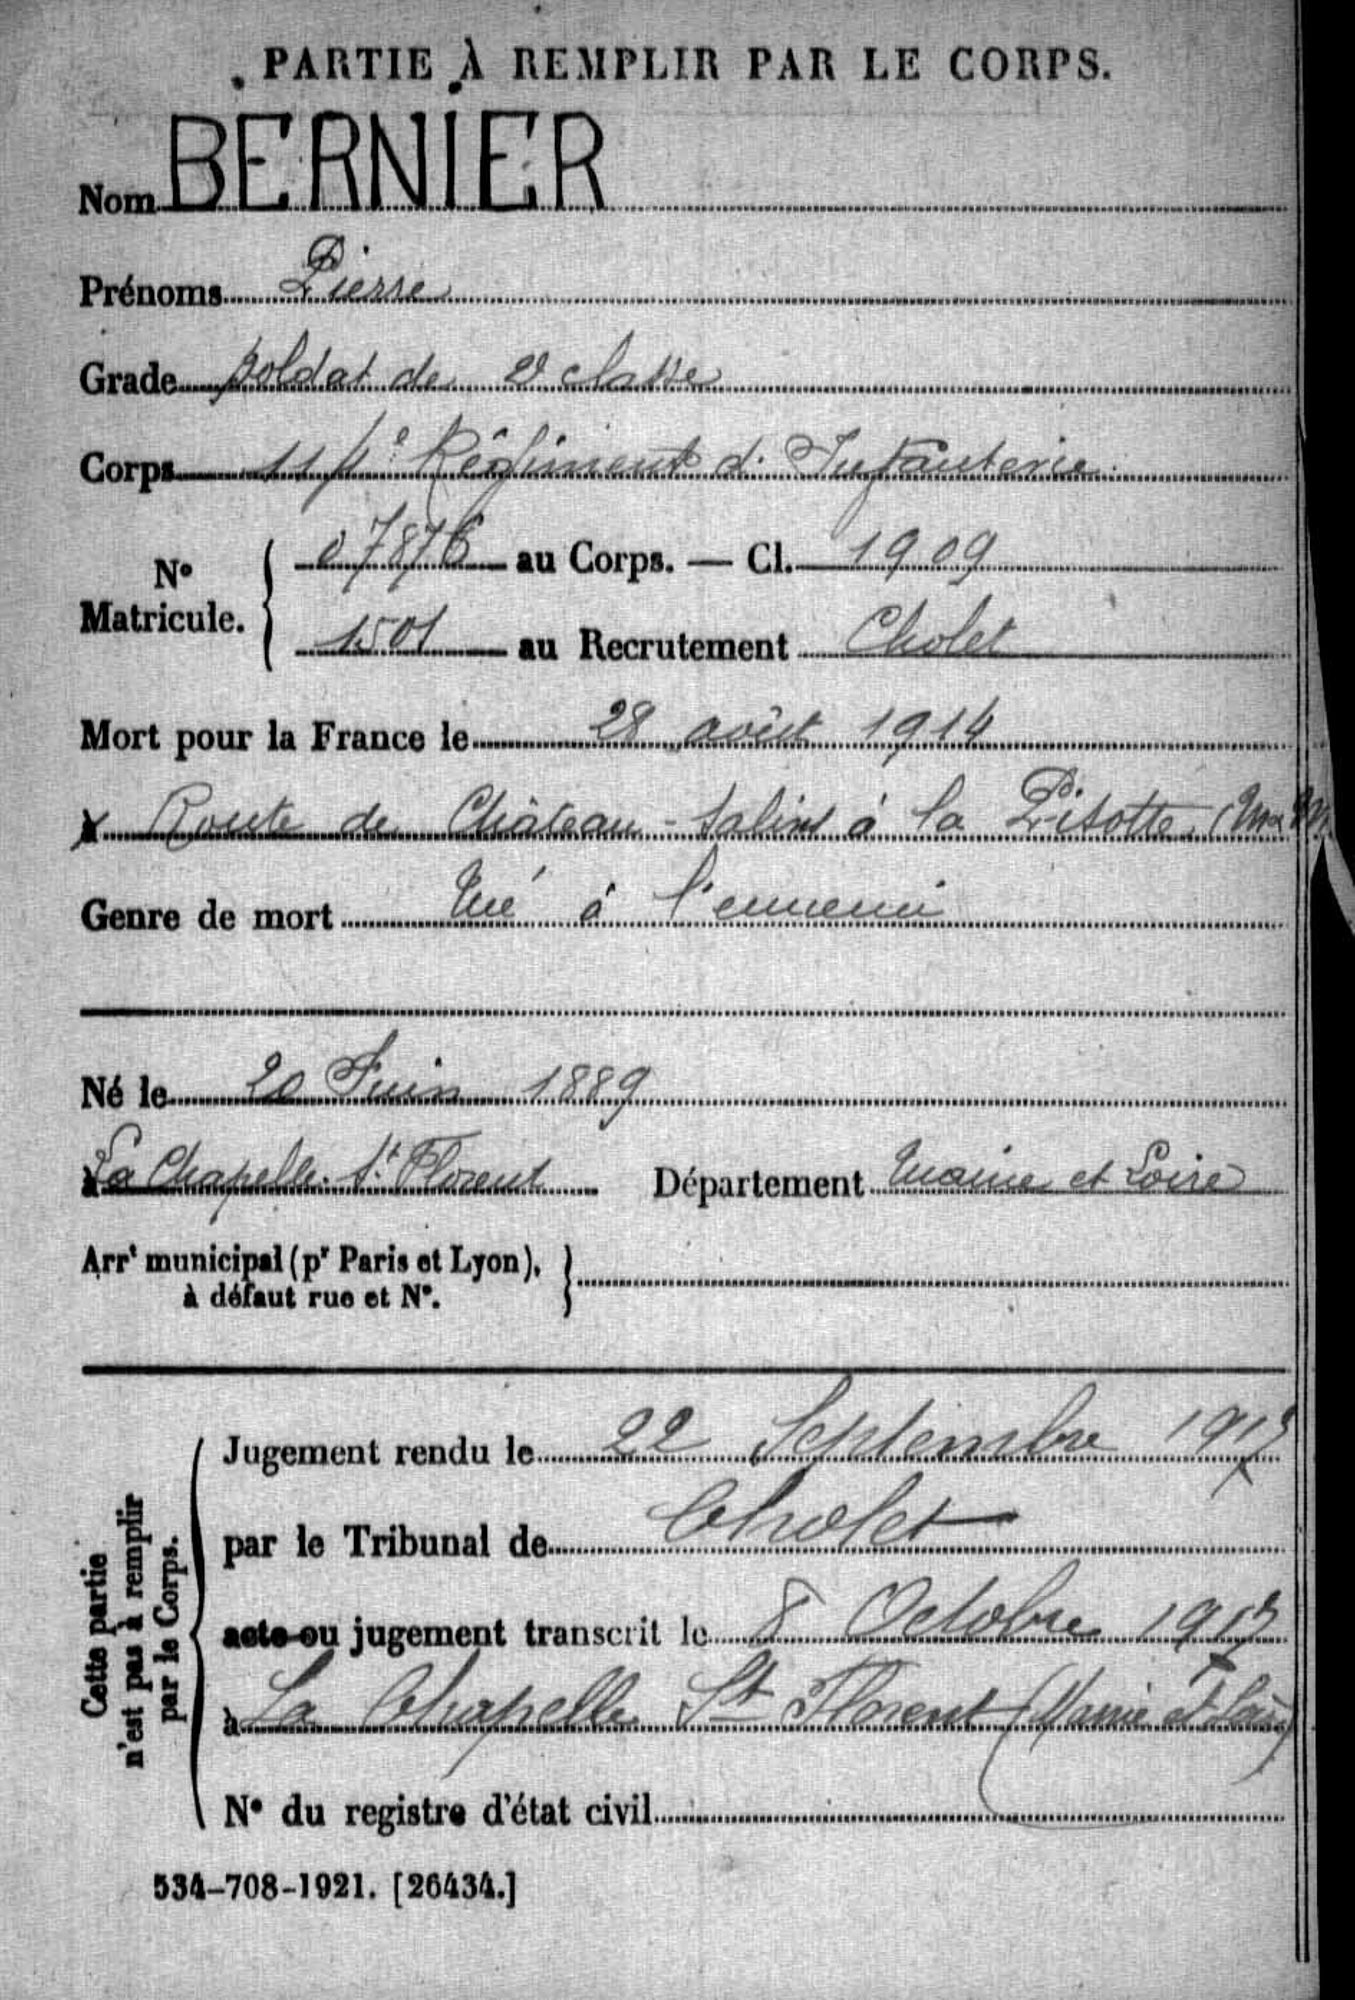 PARTIE À REMPLIR PAR LE CORPS.
Nom BERNIER
Prénoms Pierre
Grade Soldat de 2e classe
Corps 114e Régiment d'Infanterie.
N° Matricule. { 07876 au Corps. — Cl. 1909
1501 au Recrutement Cholet
Mort pour la France le 28 août 1914
à Route de Château-Salins à la Pitotte (M et M
Genre de mort Tué à l'ennemi
Né le 20 Juin 1889
à La Chapelle St Florent Département Maine et Loire
Arrt municipal (pr Paris et Lyon),
à défaut rue et N°.
Cette partie n'est pas à remplir par le Corps.
Jugement rendu le 22 Septembre 1917
par le Tribunal de Cholet
acte ou jugement transcrit le 8 Octobre 1917
à La Chapelle St Florent (Maine et Loire)
N° du registre d'état civil
534-708-1921. [26434.]